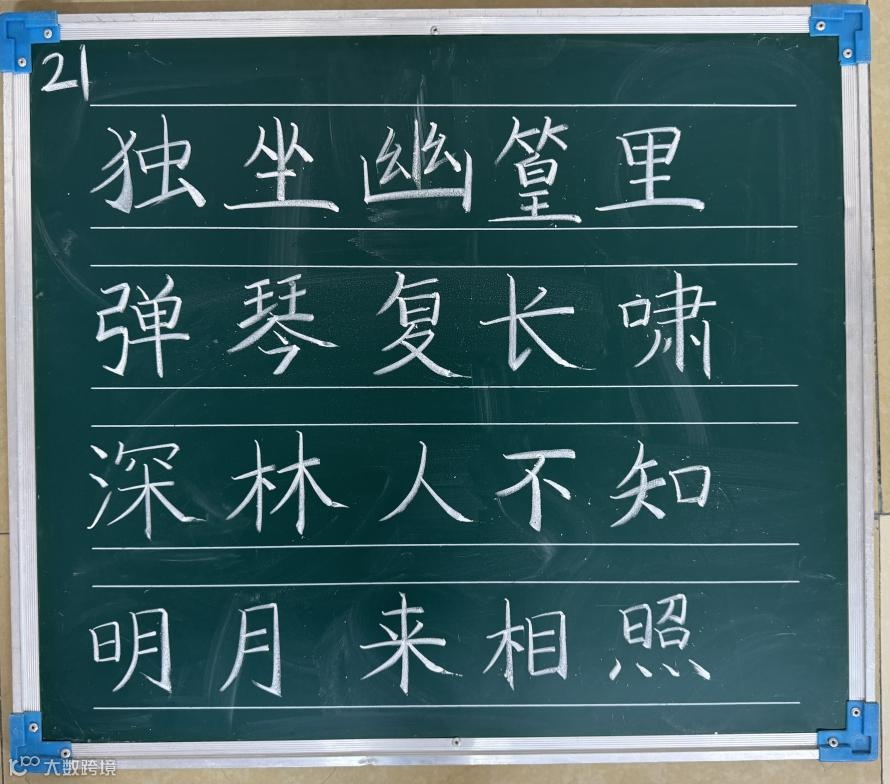 21
独坐幽篁里
弹琴复长啸
深林人不知
明月来相照
大数跨境